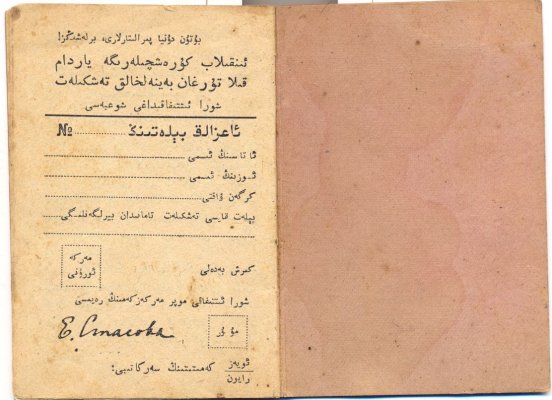 بۇتۇن دۇنيا پىرالىتارلارى، بىرلەشىڭىز!
ئىنقىلاب كۇرەشچىلەرىگە ياردام
قىلا تۇرغان بەينەلخالق تەشكىلەت
شورا ئىتتىفاقىداغى شوعبەسى
ئاعزالىق بىلەتىنىڭ №
ئاتاسىنىڭ ئىسمى
ئۇزىنىڭ ئىسمى
كىرگەن ۋاقتى
بىلەت قايسى تەشكىلەت تامانىدان بىرلگەنلىگى
مەركە
ئورۇنى
كىرىش بەدەلى
شورا ئىتتىفاقى موپر مەركەزكەمىنىڭ رەيىسى
E. Стасова
مۇ ئۇر
ئويەز
رايون
كەمىتىتىنىڭ سەركاتىبى: